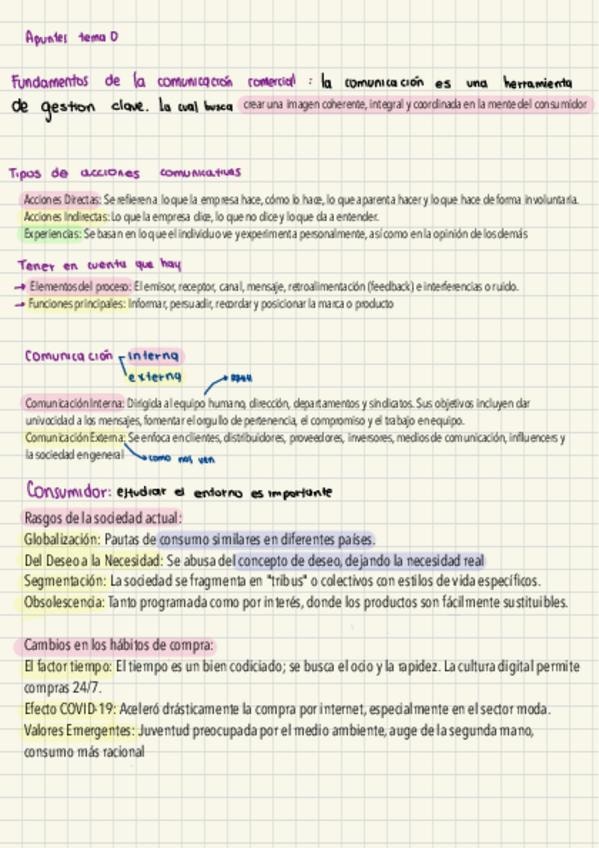 Apuntes tema 0
Fundamentos de la comunicación comercial : la comunicación es una herramienta
de gestion clave. la cual busca crear una imagen coherente, integral y coordinada en la mente del consumidor
Tipos de acciones comunicativas
Acciones Directas: Se refieren a lo que la empresa hace, cómo lo hace, lo que aparenta hacer y lo que hace de forma involuntaria.
Acciones Indirectas: Lo que la empresa dice, lo que no dice y lo que da a entender.
Experiencias: Se basan en lo que el individuo ve y experimenta personalmente, así como en la opinión de los demás
Tener en cuenta que hay
→ Elementos del proceso: El emisor, receptor, canal, mensaje, retroalimentación (feedback) e interferencias o ruido.
→ Funciones principales: Informar, persuadir, recordar y posicionar la marca o producto
Comunicación interna
externa
Comunicación Interna: Dirigida al equipo humano, dirección, departamentos y sindicatos. Sus objetivos incluyen dar
univocidad a los mensajes, fomentar el orgullo de pertenencia, el compromiso y el trabajo en equipo.
Comunicación Externa: Se enfoca en clientes, distribuidores, proveedores, inversores, medios de comunicación, influencers y
la sociedad en general → como nos ven
Consumidor: estudiar el entorno es importante
Rasgos de la sociedad actual:
Globalización: Pautas de consumo similares en diferentes países.
Del Deseo a la Necesidad: Se abusa del concepto de deseo, dejando la necesidad real
Segmentación: La sociedad se fragmenta en "tribus" o colectivos con estilos de vida específicos.
Obsolescencia: Tanto programada como por interés, donde los productos son fácilmente sustituibles.
Cambios en los hábitos de compra:
El factor tiempo: El tiempo es un bien codiciado; se busca el ocio y la rapidez. La cultura digital permite
compras 24/7.
Efecto COVID-19: Aceleró drásticamente la compra por internet, especialmente en el sector moda.
Valores Emergentes: Juventud preocupada por el medio ambiente, auge de la segunda mano,
consumo más racional